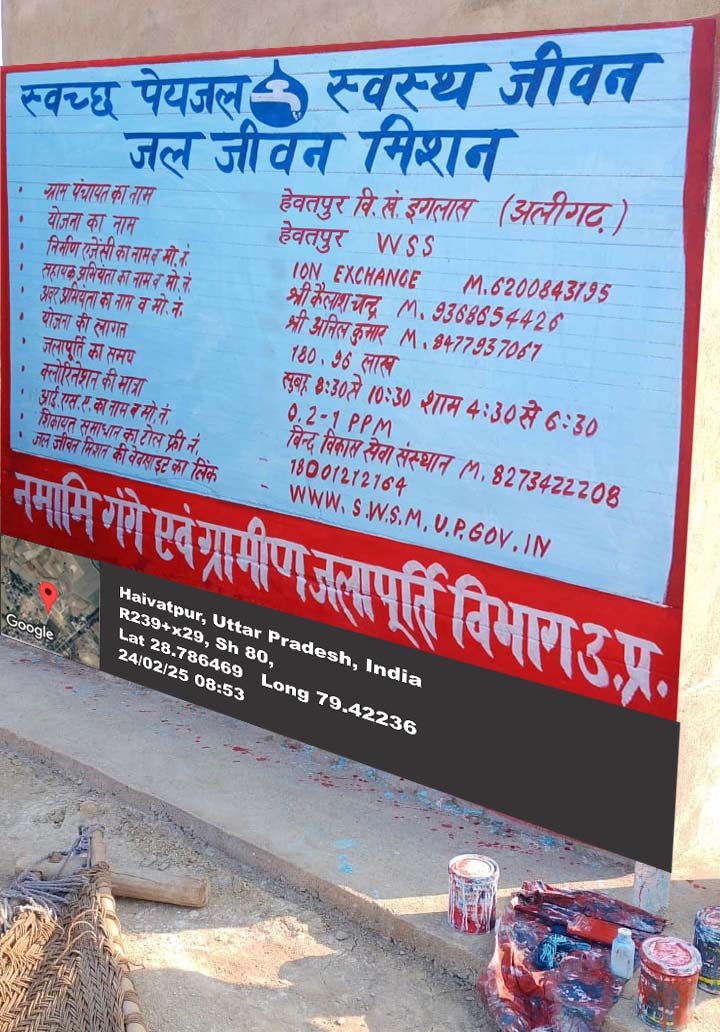 स्वच्छ पेयजल स्वस्थ जीवन
जल जीवन मिशन
• ग्राम पंचायत का नाम हेवतपुर वि. सं. इगलास (अलीगढ़)
• योजना का नाम हेवतपुर WSS
• निर्माण एजेंसी का नाम व मो. नं. ION EXCHANGE M.6200843195
• सहायक अभियंता का नाम व मो. नं. श्री कैलाश चन्द्र M. 9368654426
• अवर अभियंता का नाम व मो. नं. श्री अनिल कुमार M. 8477937067
• योजना की लागत 180.96 लाख
• जलापूर्ति का समय सुबह 8:30 से 10:30 शाम 4:30 से 6:30
• क्लोरिनेशन की मात्रा 0.2-1 PPM
• आई.एस.ए. का नाम व मो. नं. बिन्द विकास सेवा संस्थान M. 8273422208
• शिकायत समाधान का टोल फ्री नं. - 18001212164
• जल जीवन मिशन की वेबसाइट का लिंक - WWW. S.W.S.M. U.P.GOV.IN
नमामि गंगे एवं ग्रामीण जलापूर्ति विभाग उ.प्र.
Google
Haivatpur, Uttar Pradesh, India
R239+x29, Sh 80,
Lat 28.786469 Long 79.42236
24/02/25 08:53